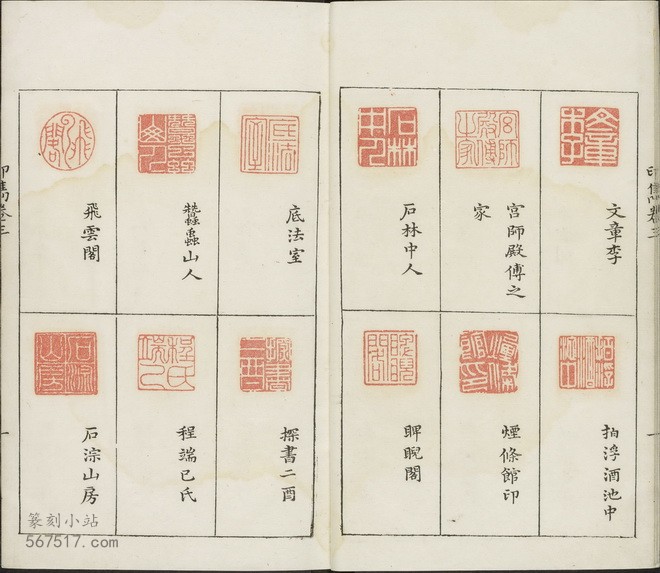 印雋卷三
文章李
宮師殿傅之
家
石林中人
拍浮酒池中
煙條館印
睥睨閣
底法室
山人
飛雲閣
探書二酉
程端已氏
石淙山房
印雋卷三
一
一
篆刻小站
567517.com